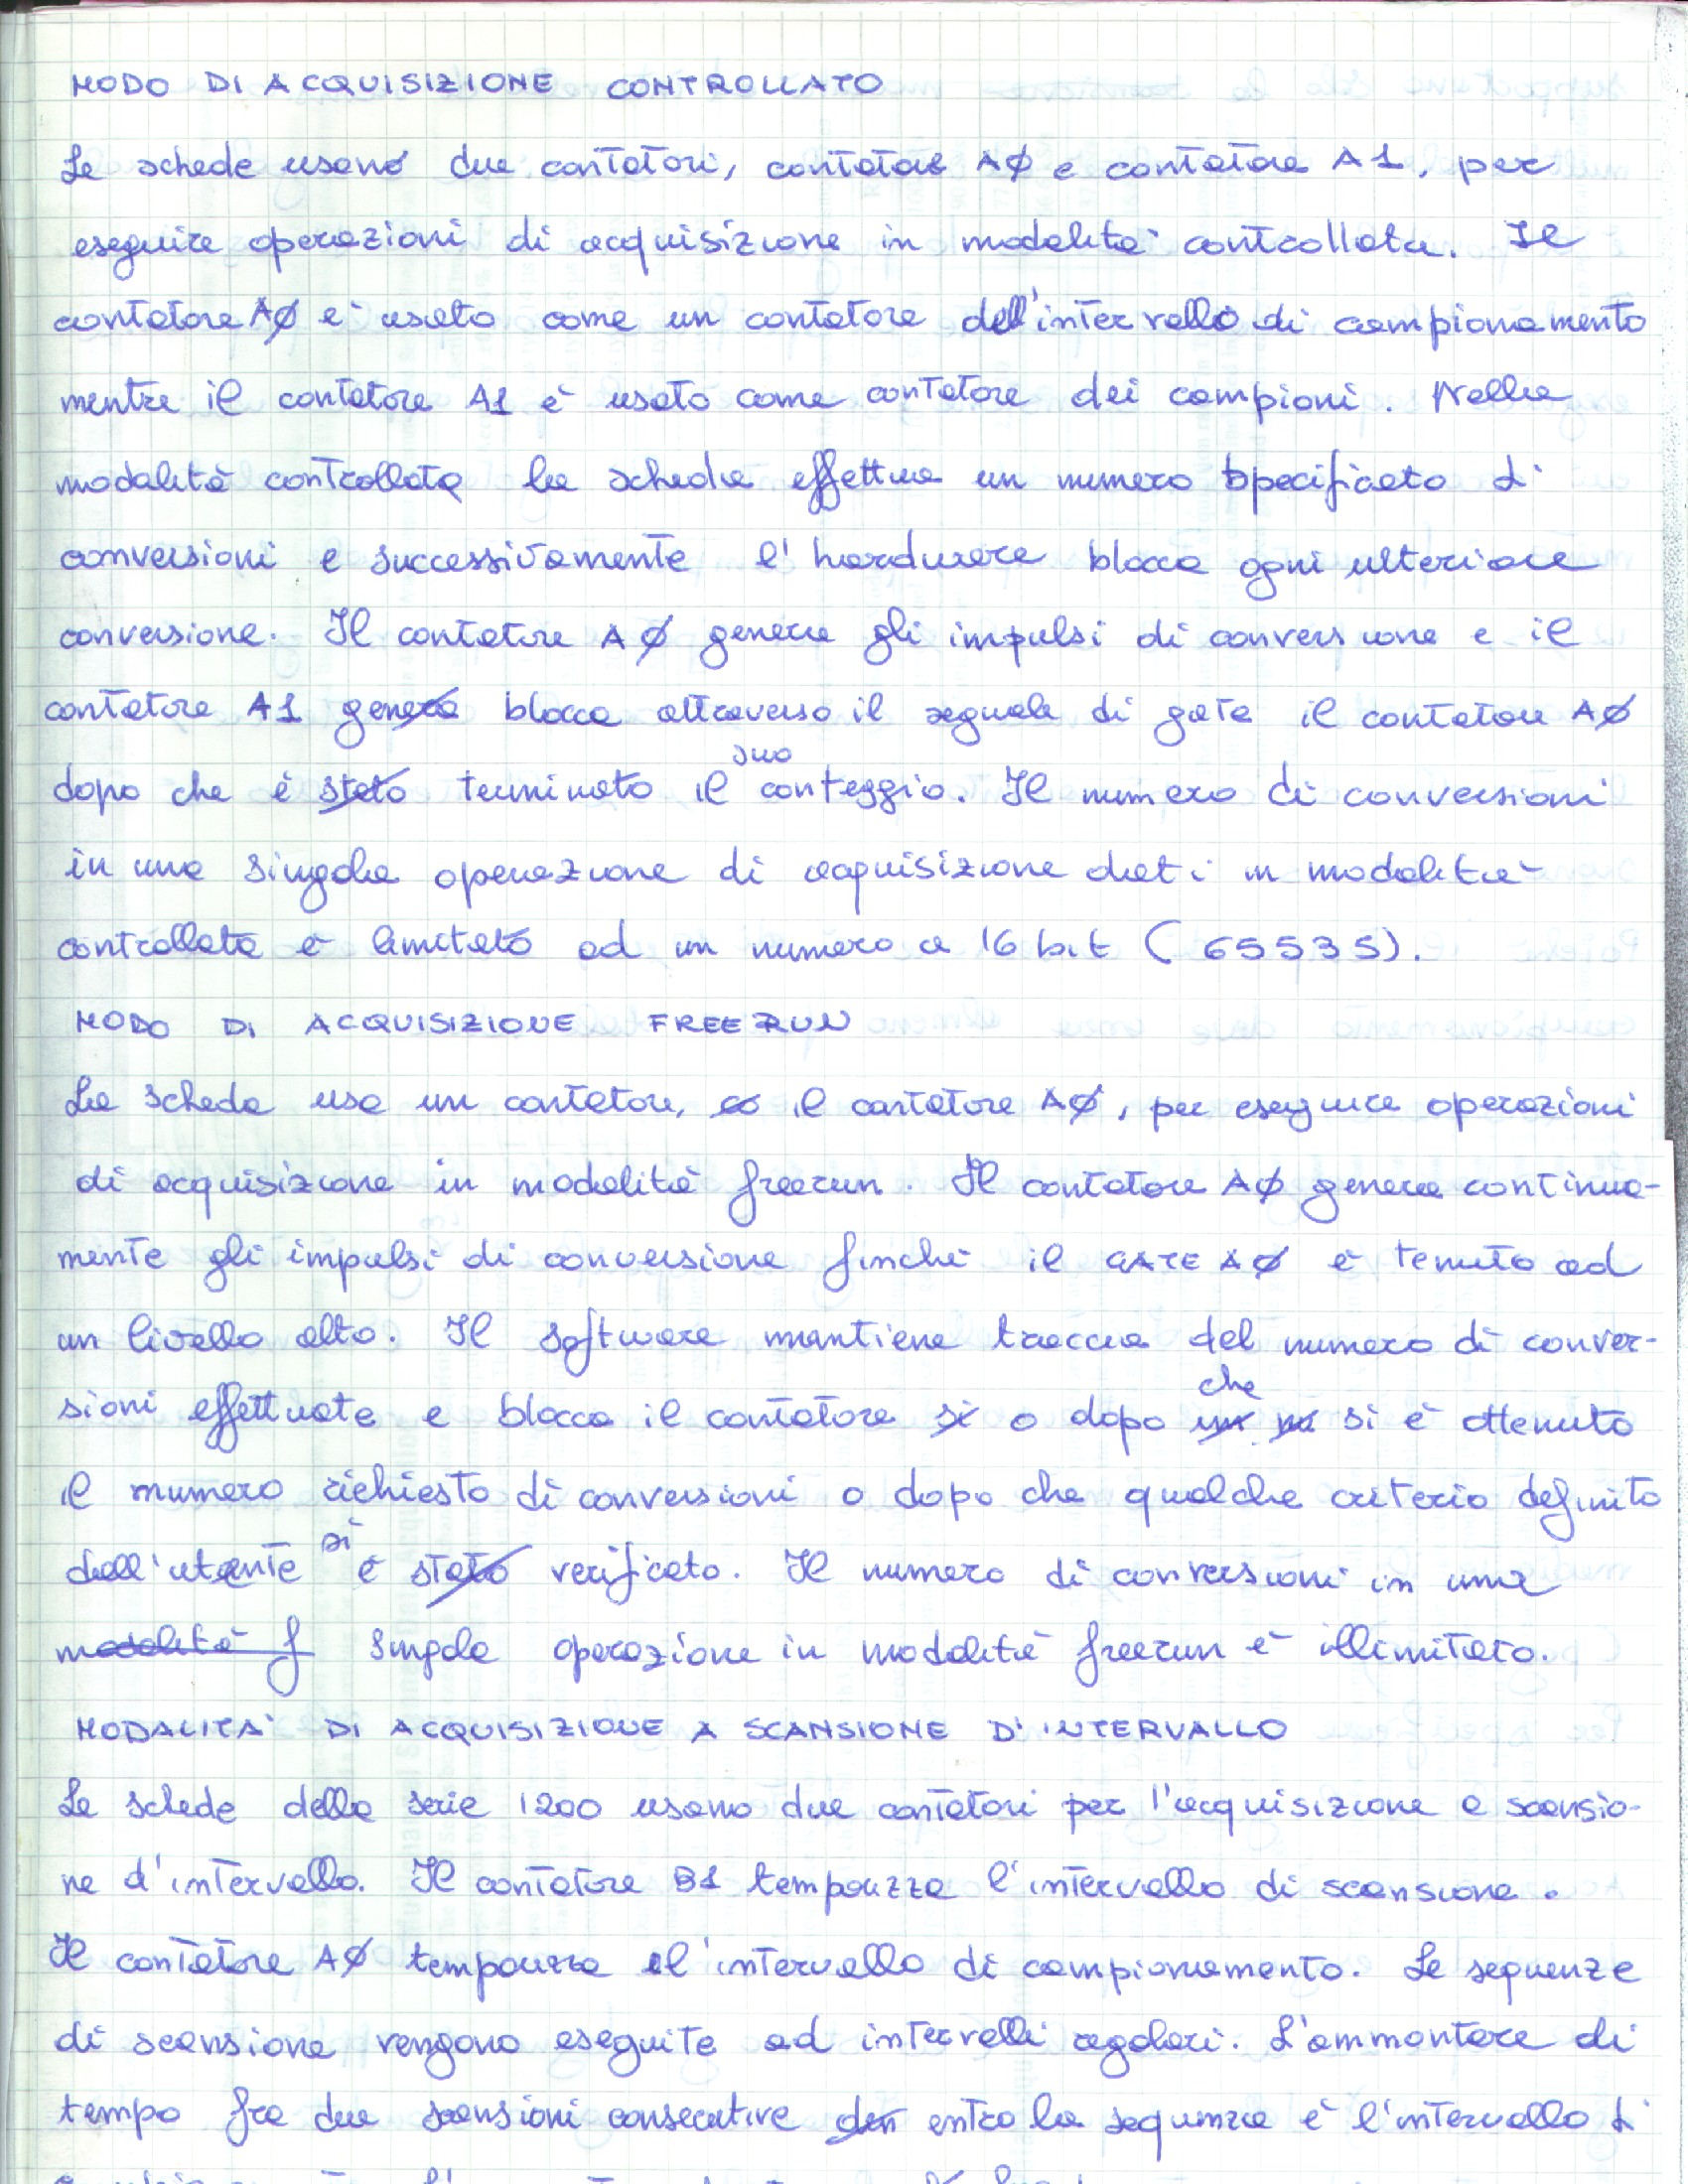 MODO DI ACQUISIZIONE CONTROLLATO
Le schede usano due contatori, contatore AØ e contatore A1, per
eseguire operazioni di acquisizione in modalità controllata. Il
contatore AØ è usato come un contatore dell'intervallo di campionamento
mentre il contatore A1 è usato come contatore dei campioni. Nella
modalità controllata la scheda effettua un numero specificato di
conversioni e successivamente l'hardware blocca ogni ulteriore
conversione. Il contatore AØ genera gli impulsi di conversione e il
contatore A1 genera blocca attraverso il segnale di gate il contatore AØ
dopo che è stato terminato il suo conteggio. Il numero di conversioni
in una singola operazione di acquisizione dati in modalità
controllata è limitato ad un numero a 16 bit (65535).
MODO DI ACQUISIZIONE FREERUN
La scheda usa un contatore, co il contatore AØ, per eseguire operazioni
di acquisizione in modalità freerun. Il contatore AØ genera continua-
mente gli impulsi di conversione finchè il GATE AØ è tenuto ad
un livello alto. Il software mantiene traccia del numero di conver-
sioni effettuate e blocca il contatore si o dopo che si è ottenuto
il numero richiesto di conversioni o dopo che qualche criterio definito
dall'utente si è stato verificato. Il numero di conversioni in una
modalità f singola operazione in modalità freerun è illimitato.
MODALITA' DI ACQUISIZIONE A SCANSIONE D'INTERVALLO
Le schede della serie 1200 usano due contatori per l'acquisizione a scansio-
ne d'intervallo. Il contatore B1 temporizza l'intervallo di scansione.
Il contatore AØ temporizza l'intervallo di campionamento. Le sequenze
di scansione vengono eseguite ad intervalli regolari. L'ammontare di
tempo fra due scansioni consecutive entro la sequenza è l'intervallo di